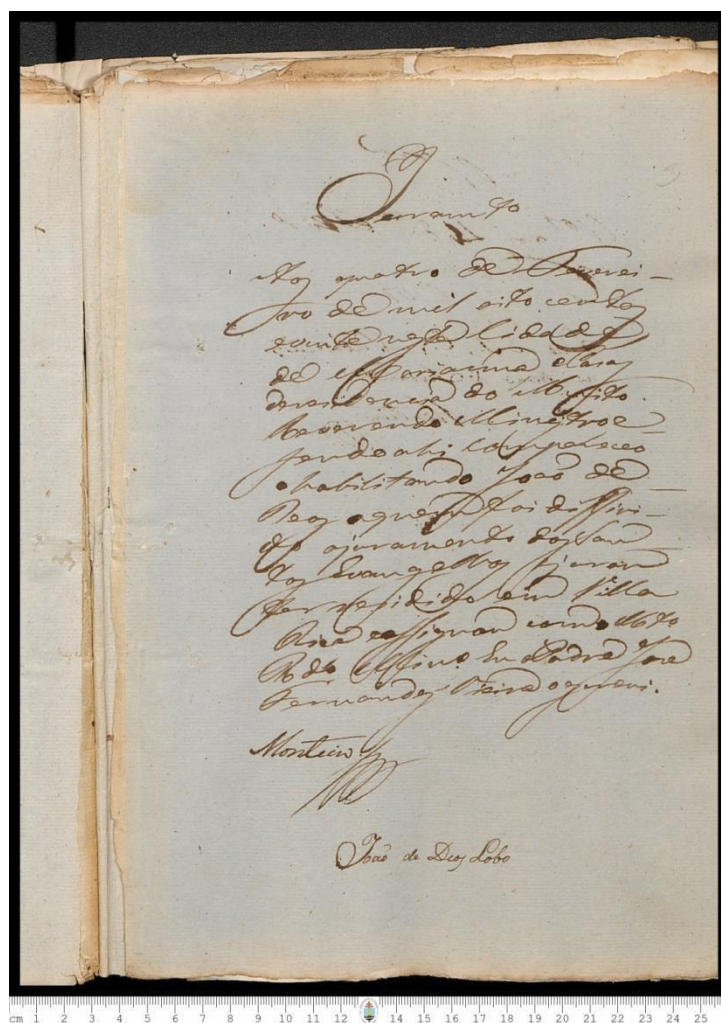 Juramto
Aos quatro de Feverei-
ro de mil oito centos
e vinte nesta Cidade
de Marianna e Casas
de residencia do Muito
Reverendo Ministro e
sendo ahi compareceo
o habilitando João de
Deos a quem foi diffiri-
do o juramento dos San
tos Evangelhos jurou
ter rezidido em Villa
Rica e assignou com o Mto
Rdo Minro Eu o Padre Jose
Fernandes Vieira o escrevi.
Monteiro
João de Deos Lobo
cm 1 2 3 4 5 6 7 8 9 10 11 12 13 14 15 16 17 18 19 20 21 22 23 24 25